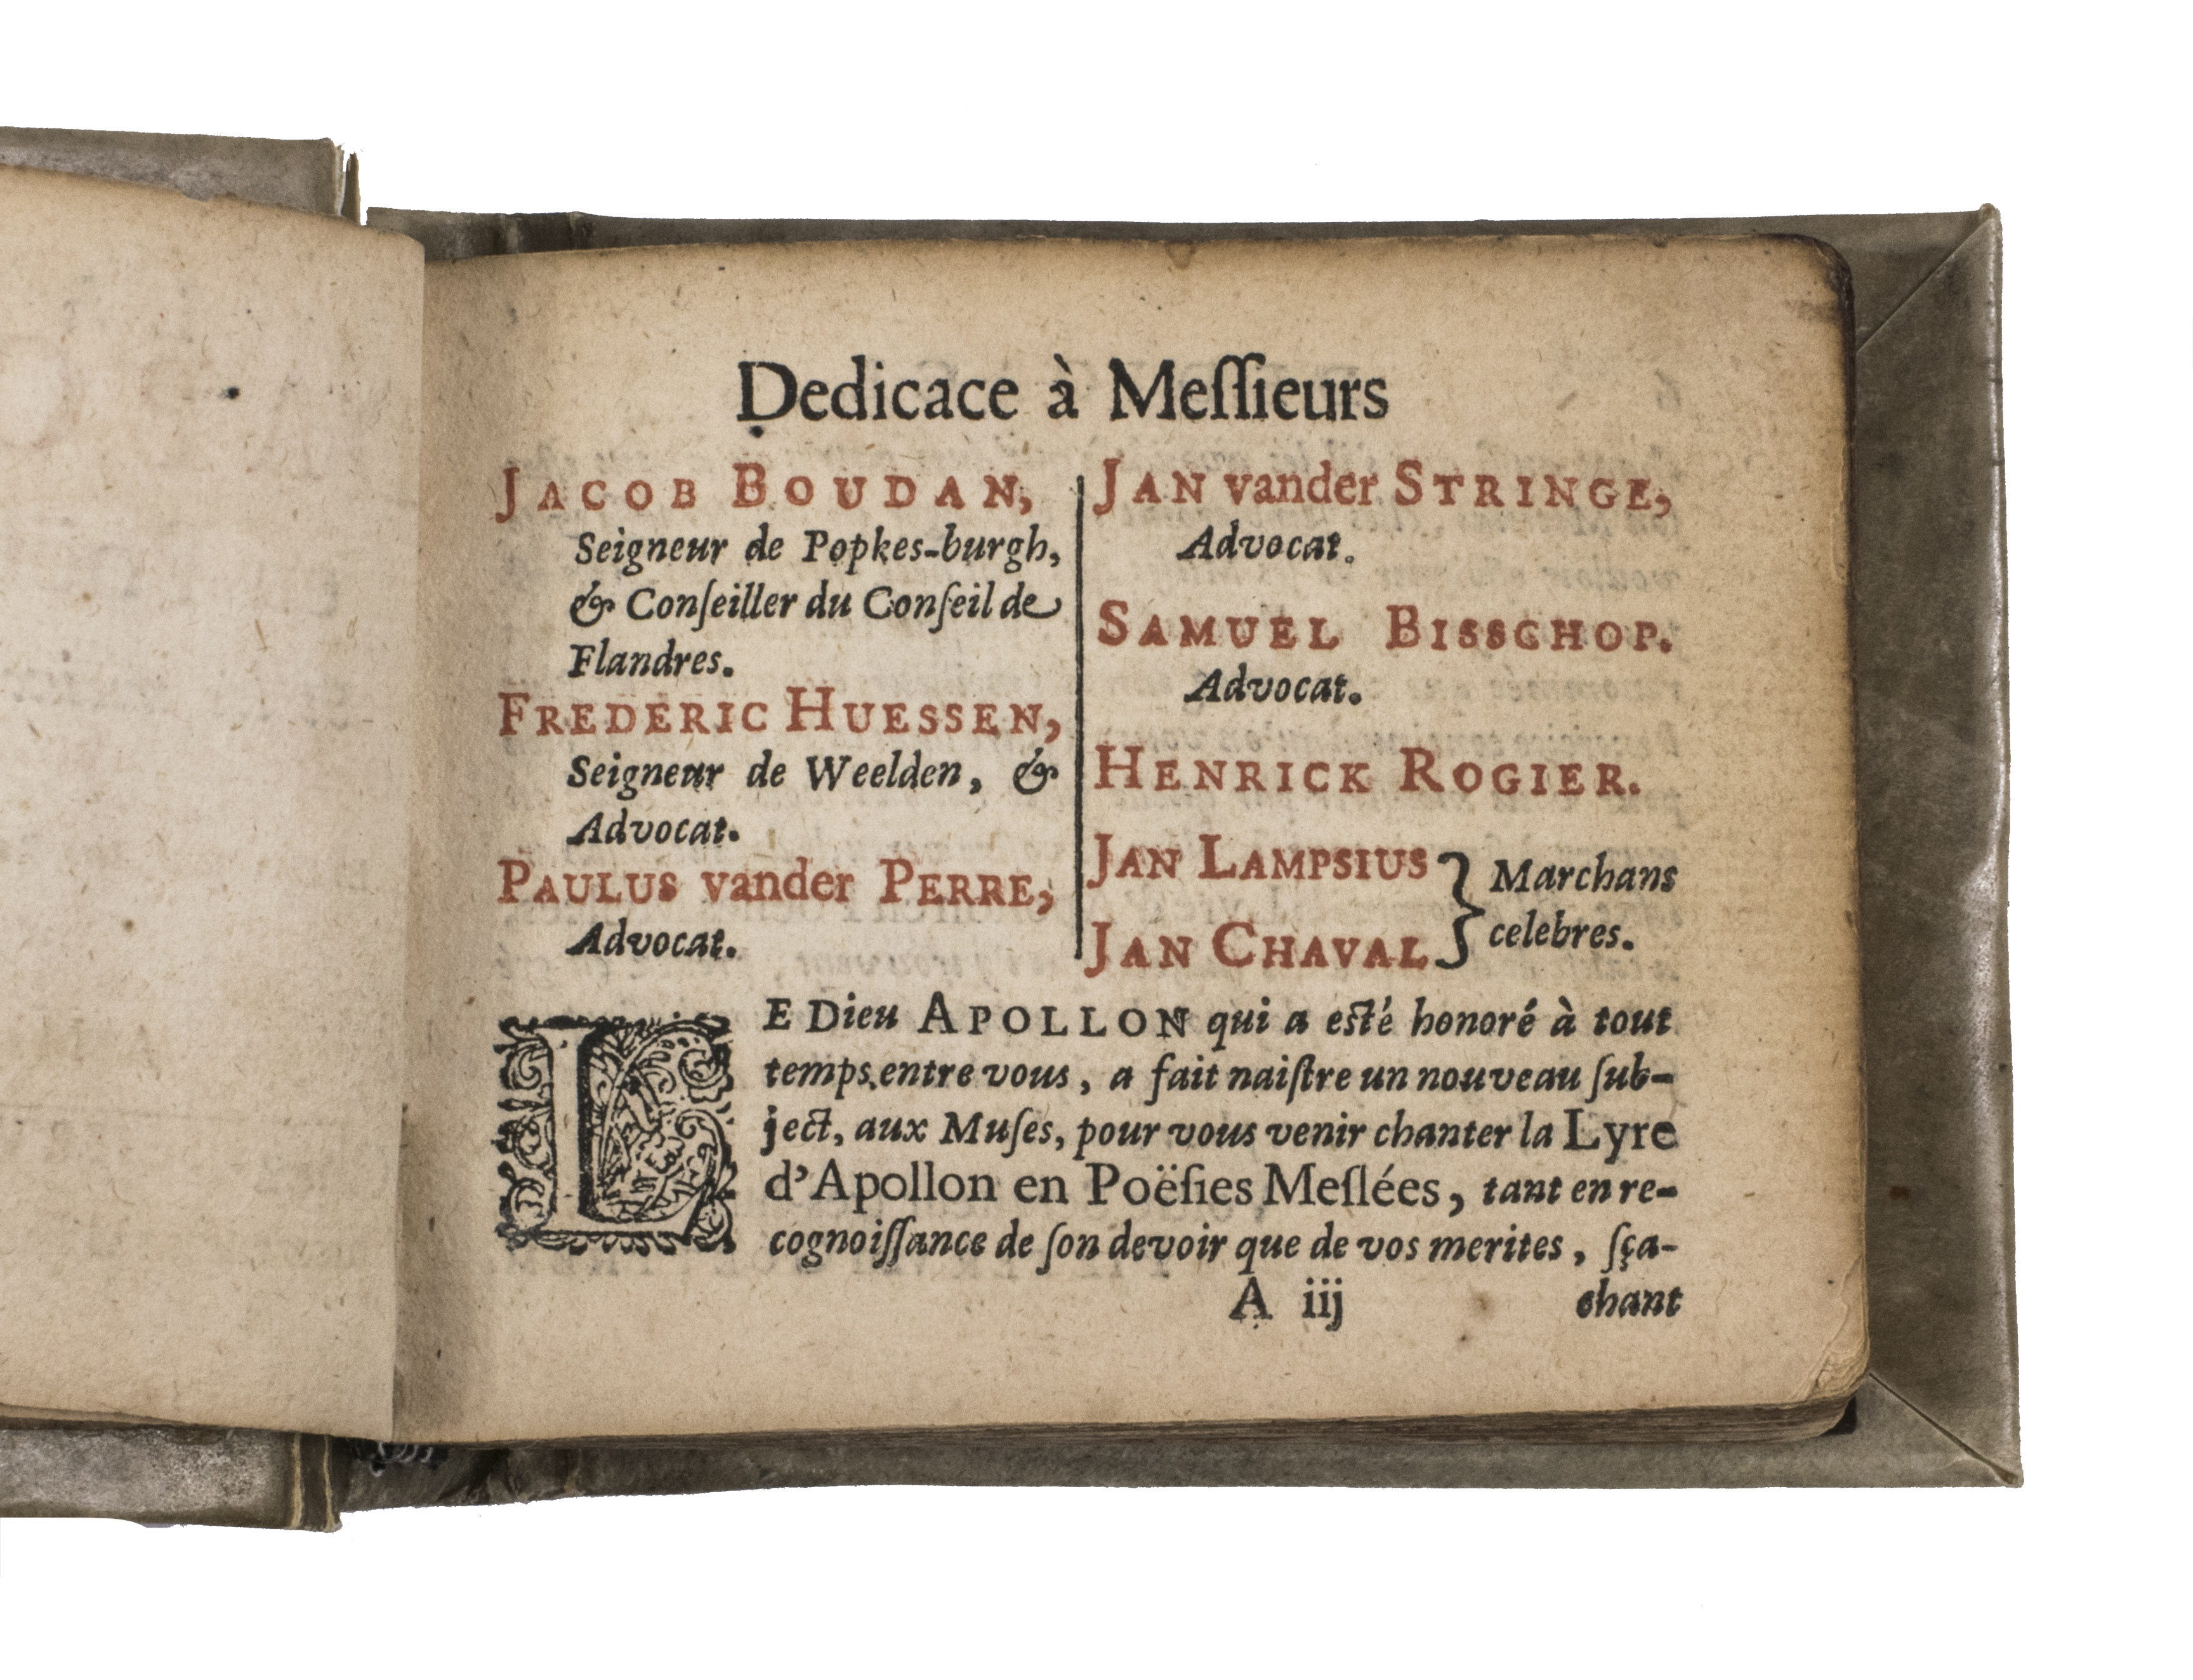 Dedicace à Meſſieurs
JACOB BOUDAN,
Seigneur de Popkes-burgh,
& Conſeiller du Conſeil de
Flandres.
FREDERIC HUESSEN,
Seigneur de Weelden, &
Advocat.
PAULUS vander PERRE,
Advocat.
JAN vander STRINGE,
Advocat.
SAMUEL BISSCHOP.
Advocat.
HENRICK ROGIER.
JAN LAMPSIUS
JAN CHAVAL
} Marchans
celebres.
LE Dieu APOLLON qui a eſté honoré à tout
temps entre vous, a fait naiſtre un nouveau ſub-
ject, aux Muſes, pour vous venir chanter la Lyre
d'Apollon en Poëſies Meſlées, tant en re-
cognoiſſance de ſon devoir que de vos merites, ſça-
A iij chant